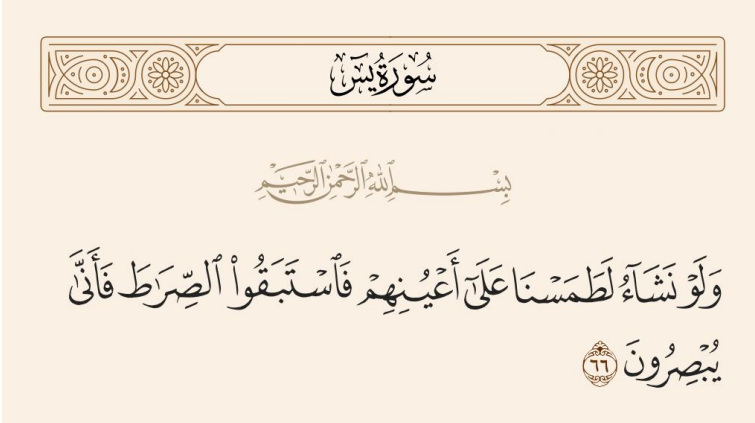 سُورَةُ يسٓ
بِسْمِ ٱللَّهِ ٱلرَّحْمَٰنِ ٱلرَّحِيمِ
وَلَوْ نَشَآءُ لَطَمَسْنَا عَلَىٰٓ أَعْيُنِهِمْ فَٱسْتَبَقُوا۟ ٱلصِّرَٰطَ فَأَنَّىٰ
يُبْصِرُونَ ٦٦